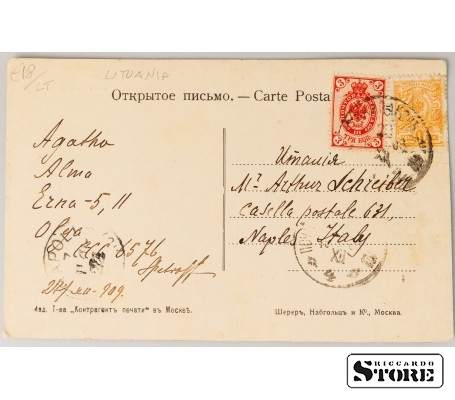 €18/LT
LITUANIA
Открытое письмо. — Carte Posta
3 3
3 3
ТРИ КОП.
Agatha
Alma
Erna-5, 11
Olga
ЖСС 6576
Италия
Mr. Arthur Schreiber
Casella postale 631,
Naples, Italy
Изд. Т-ва „Контрагентъ печати" въ Москвѣ.
Шереръ, Набгольцъ и Ко., Москва.
RICCARDO
STORE